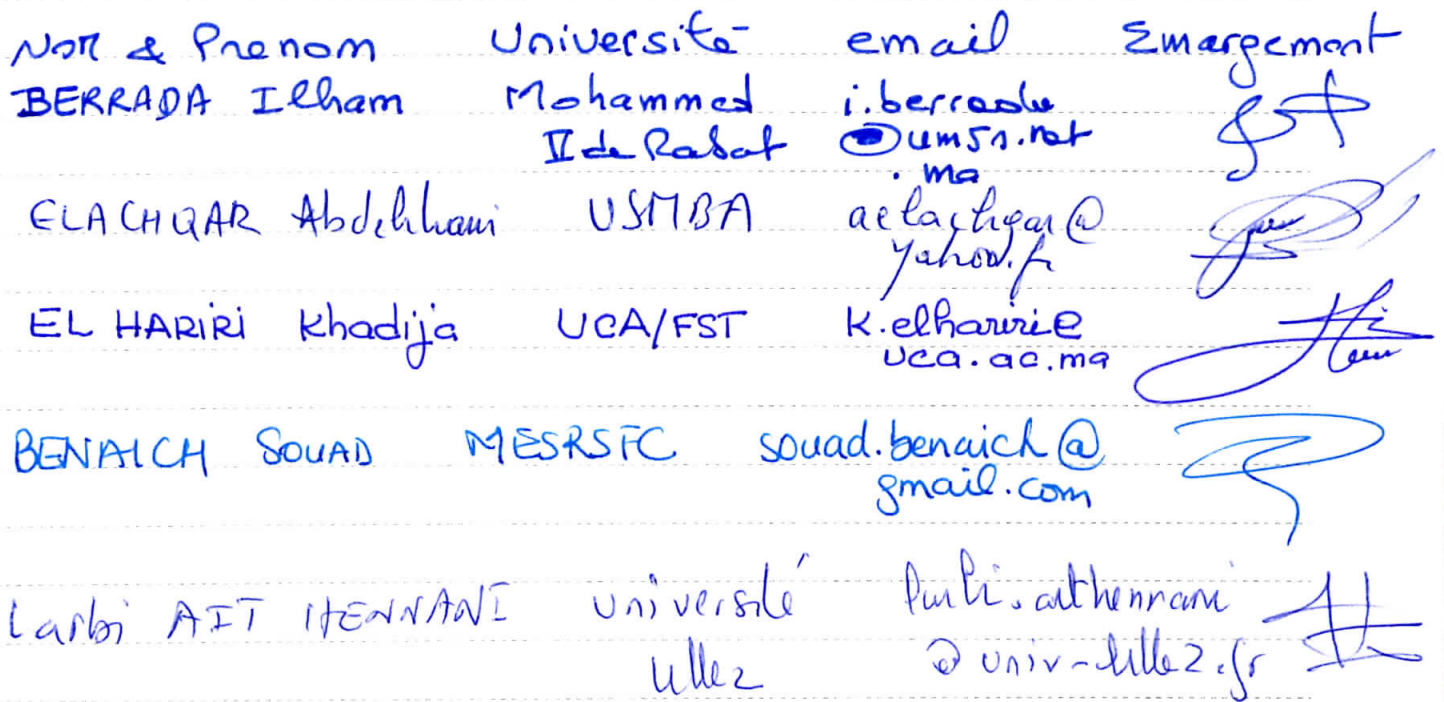 Nom & Prenom Université email Emargement
BERRADA Ilham Mohammed i.berrada
II de Rabat @um5s.net
.ma
ELACHQAR Abdelhani USMBA aelachqar@
yahoo.fr
EL HARIRI Khadija UCA/FST K.elhariri@
uca.ac.ma
BENAICH SOUAD MESRSFC souad.benaich@
gmail.com
Larbi AIT HENNANI Université
Lille2 @univ-lille2.fr